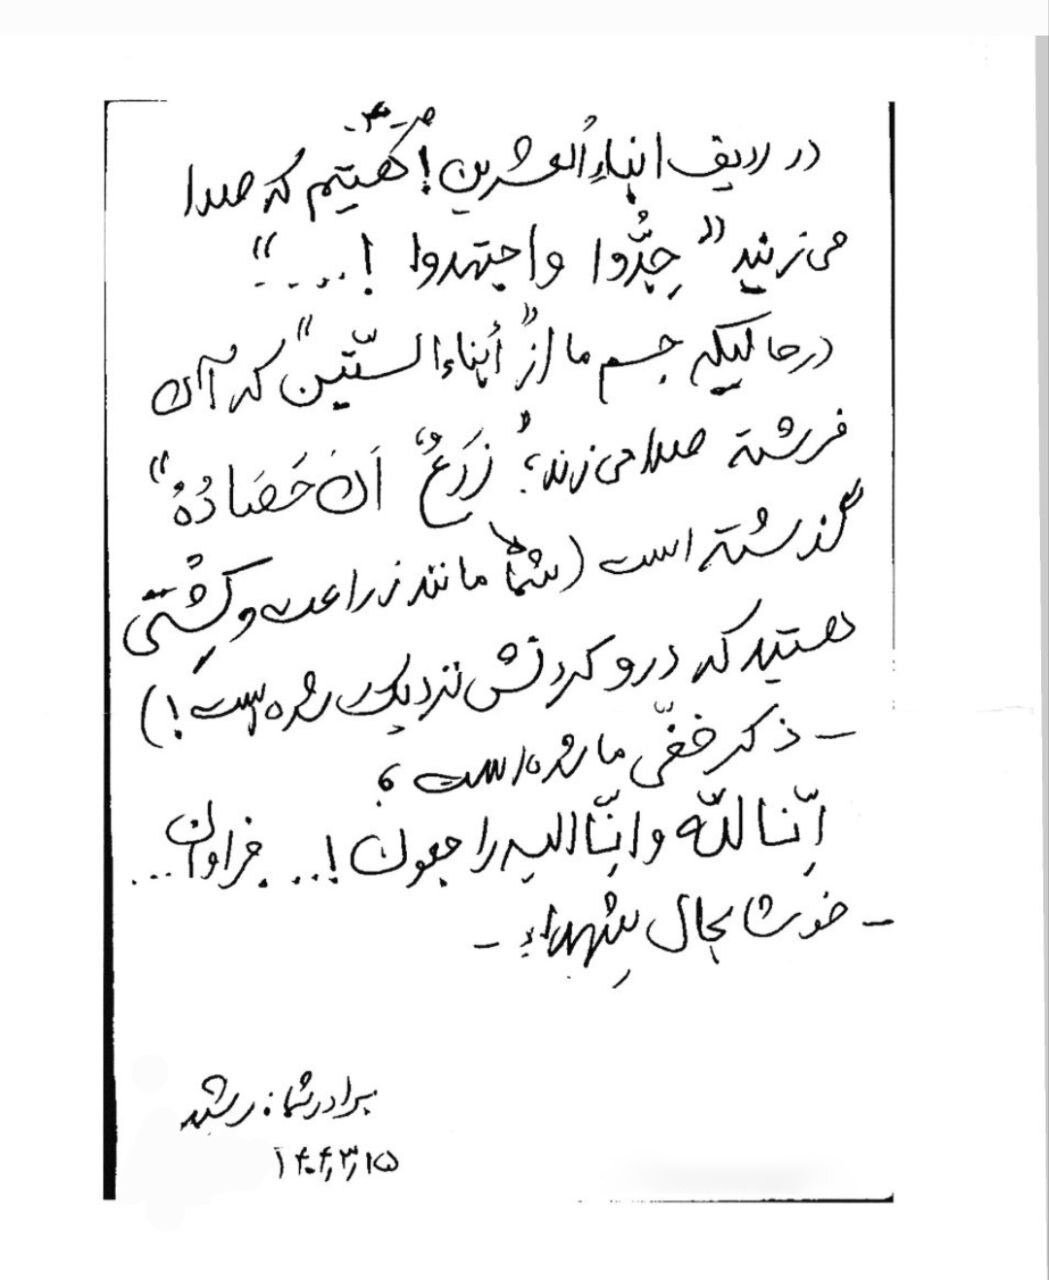 -۳-
در ردیف ابناءِ العشرین! گفتیم که صدا
می‌زنید "جِدُّوا واجتهدوا !...."
درحالیکه جسم ما از "أبناء السّتّین" که آن
فرشته صدا می‌زند؛ "زَرَعٌ اَنَ حَصَادُهُ"
گذشته است (شما مانند زراعت و کِشتی
هستید که درو کردنش نزدیک شده است!)
– ذکر خفّی ما شده است؛
اِنّا للّه وانّا الیه راجعون!... فراوان...
– خوشا بحال شهداءِ –
برادر شما: رشید
۱۴۰۴،۳،۱۵